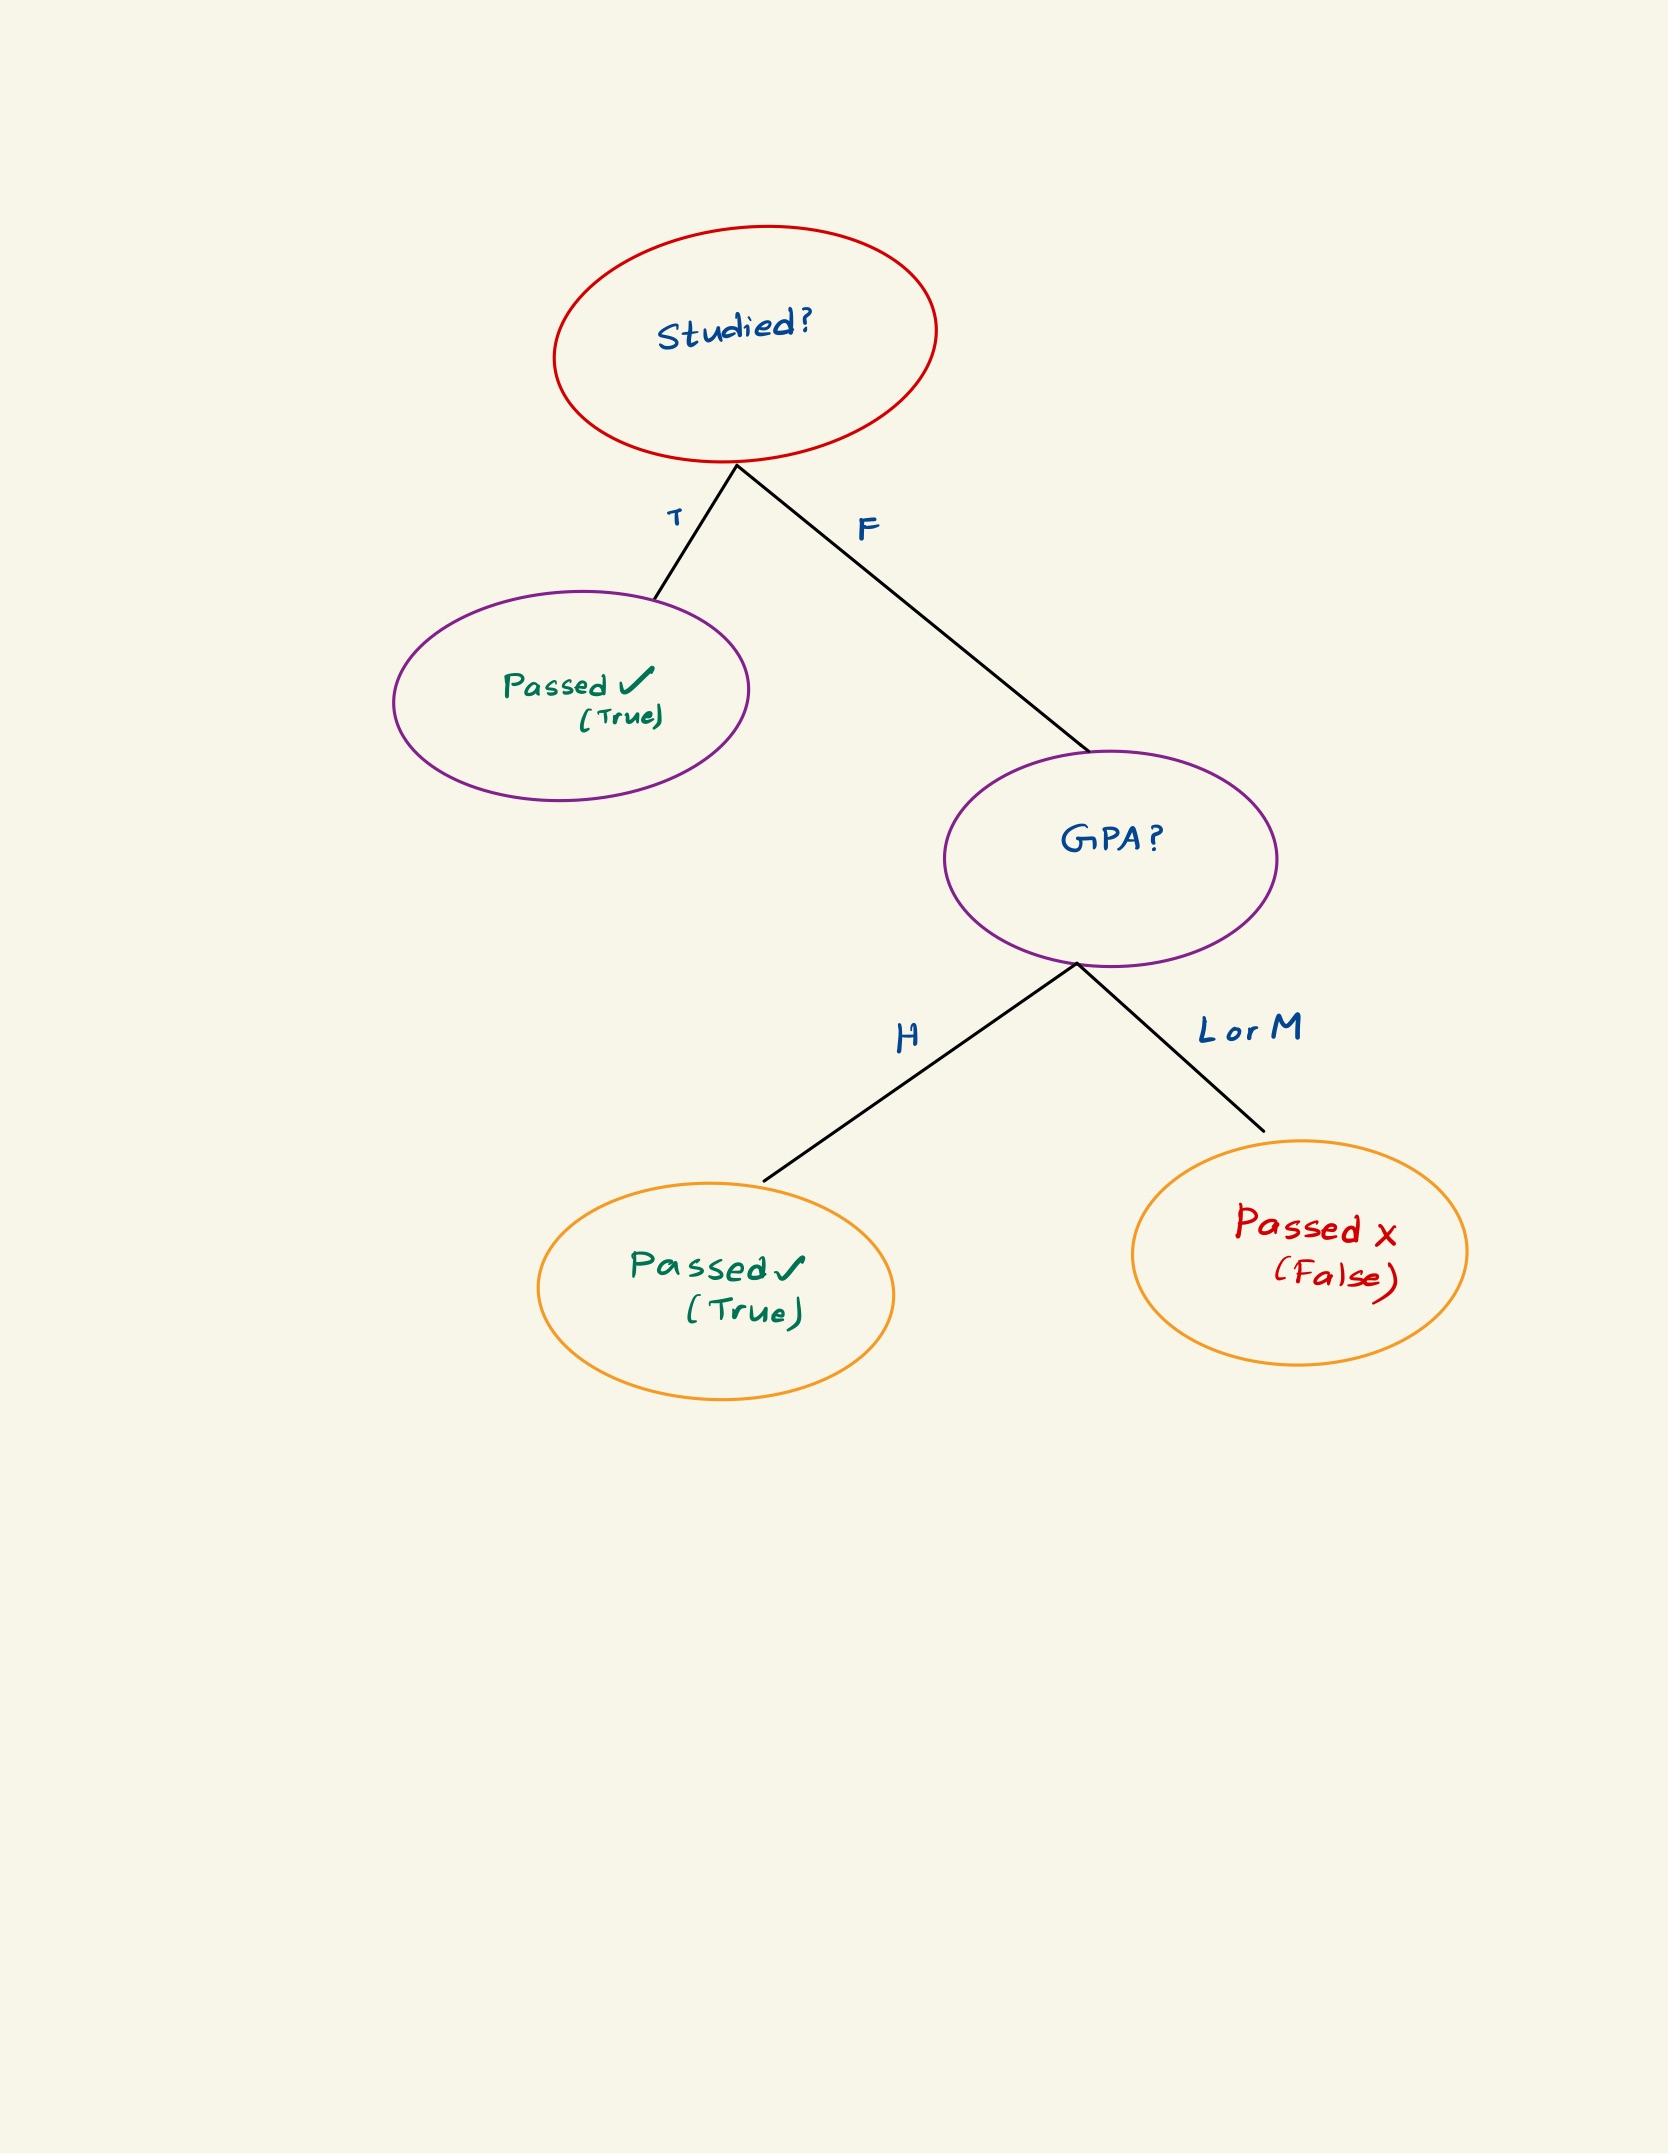 Studied?
T
F
Passed ✓
(True)
GPA?
H
L or M
Passed ✓
(True)
Passed x
(False)